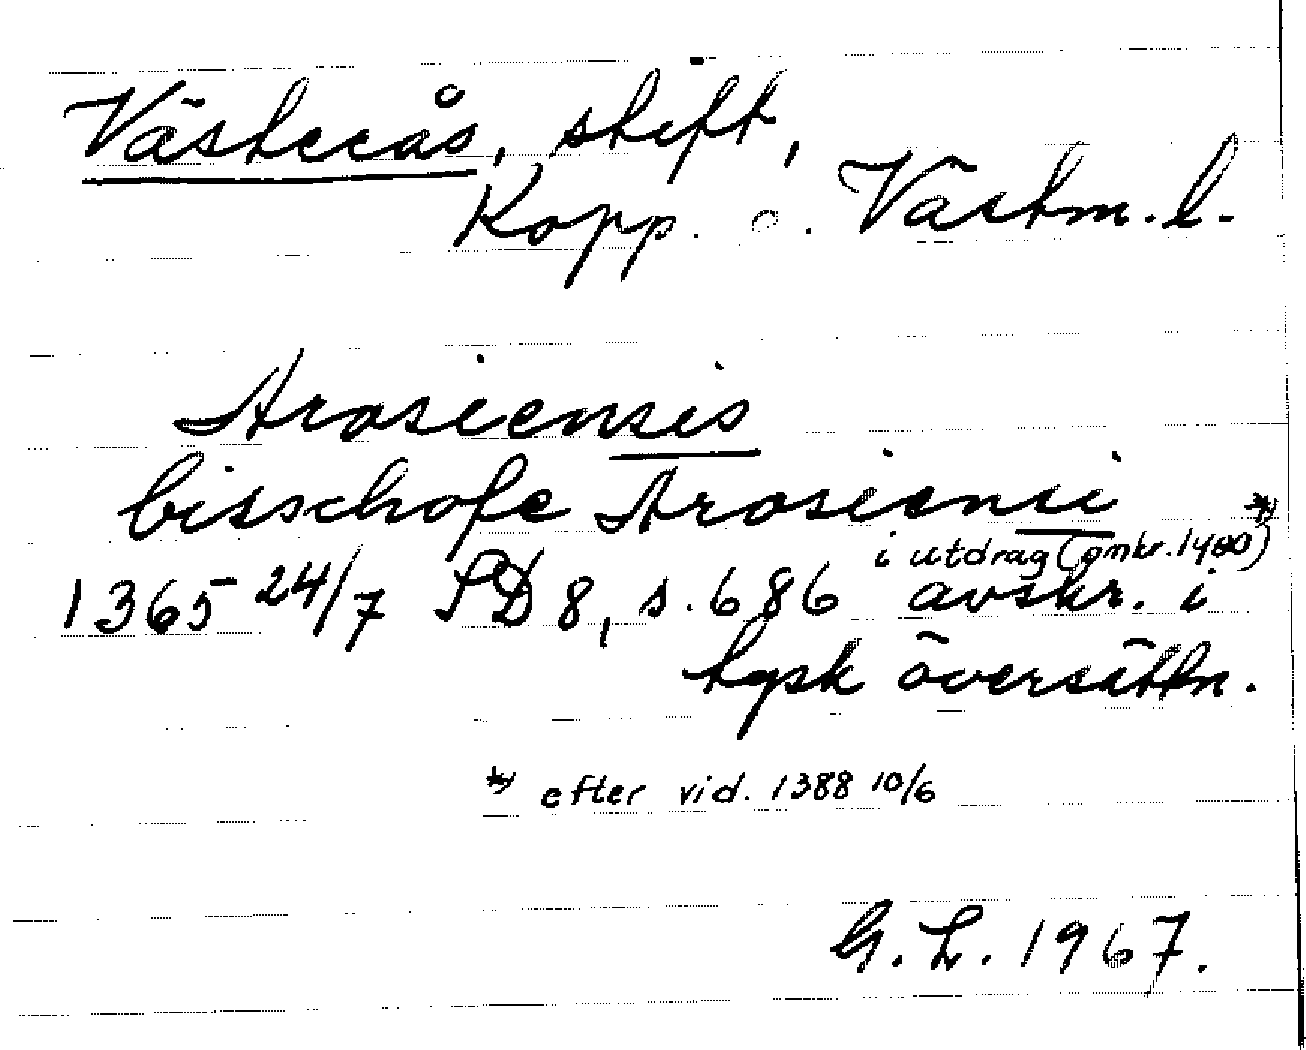 Västerås, stift,
Kopp. o. Västm. l.
Arosiensis
bisschofe Arosiensi *)
i utdrag (omkr. 1400)
1365 24/7 SD 8, s. 686 avskr. i
tysk översättn.
*) efter vid. 1388 10/6
G. L. 1967.